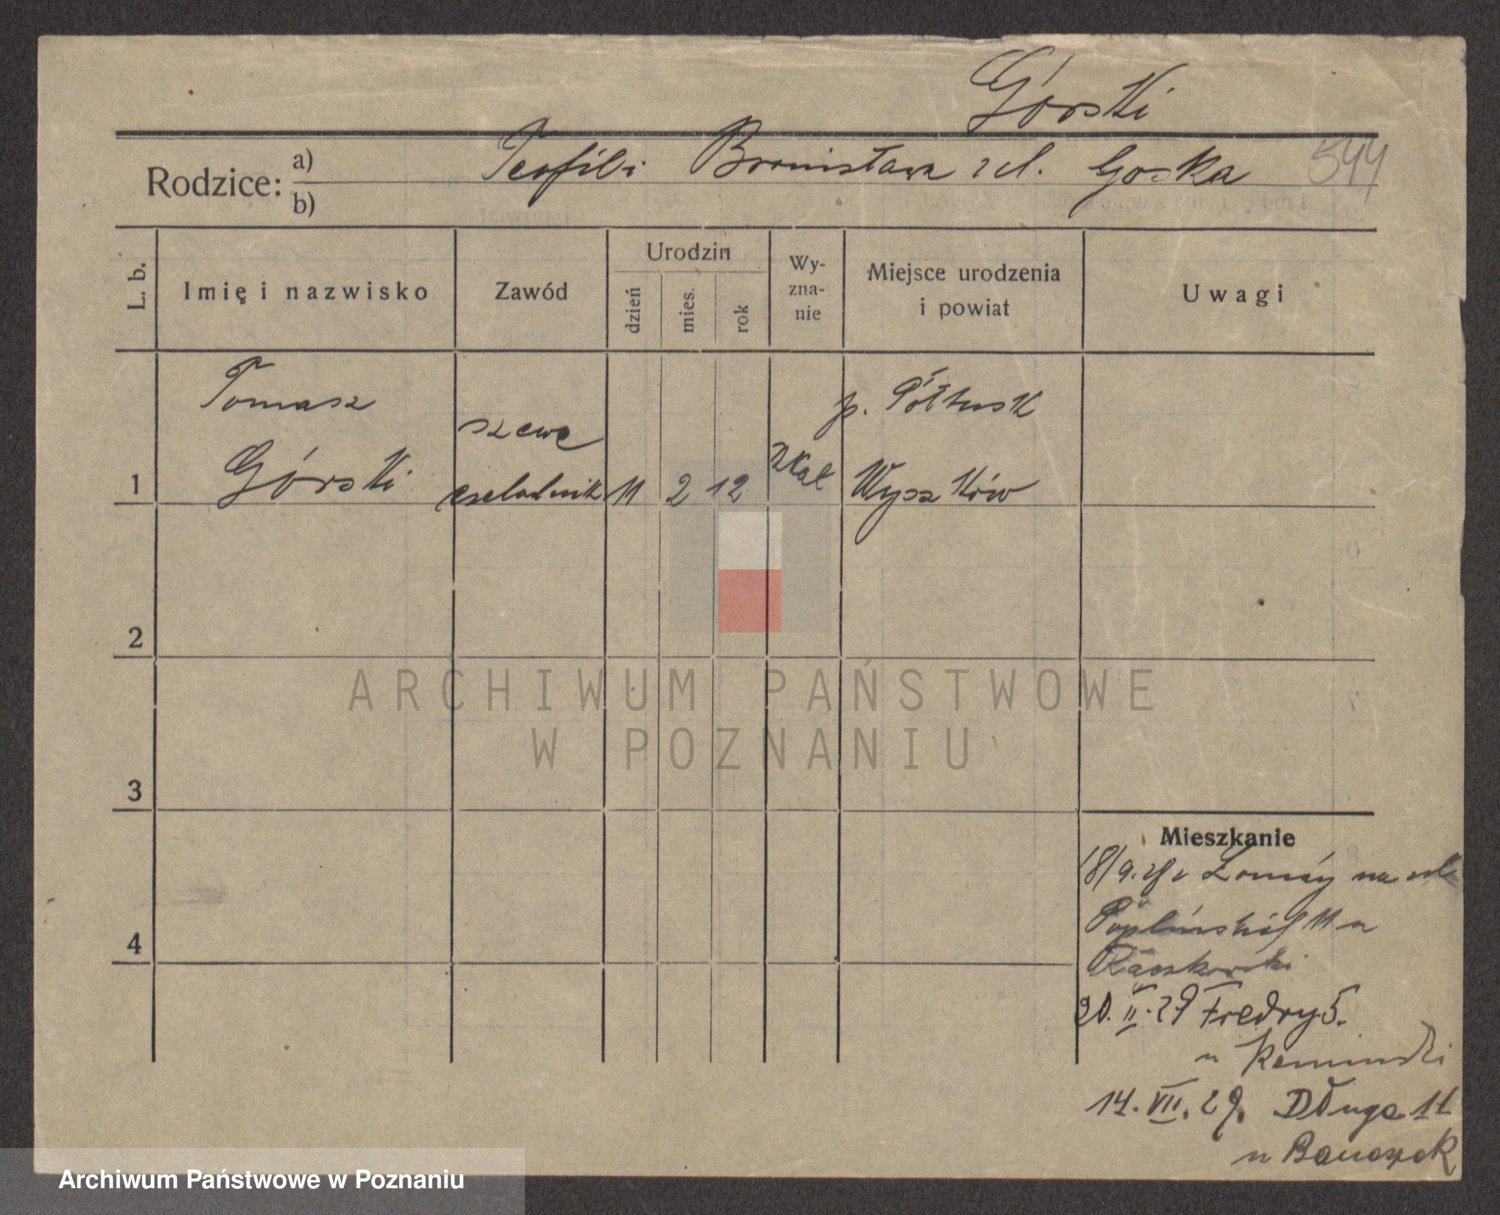 Górski
Rodzice: a) Teofil i Bronisława
b)
544
L. b.
Imię i nazwisko
Zawód
Urodzin
dzień
mies.
rok
Wy-
zna-
nie
Miejsce urodzenia
i powiat
Uwagi
Tomasz
Górski
szewc
czeladnik
1
11
2
12
p. Półtusk
Wyszków
2
3
4
Mieszkanie
18/9. z Łomży na ul
11 u
Raczkowski
20. II. 29 Fredry 5.
u Kaminski
14. VII. 29. Długa 11
u Banaszak
ARCHIWUM PAŃSTWOWE
W POZNANIU
Archiwum Państwowe w Poznaniu